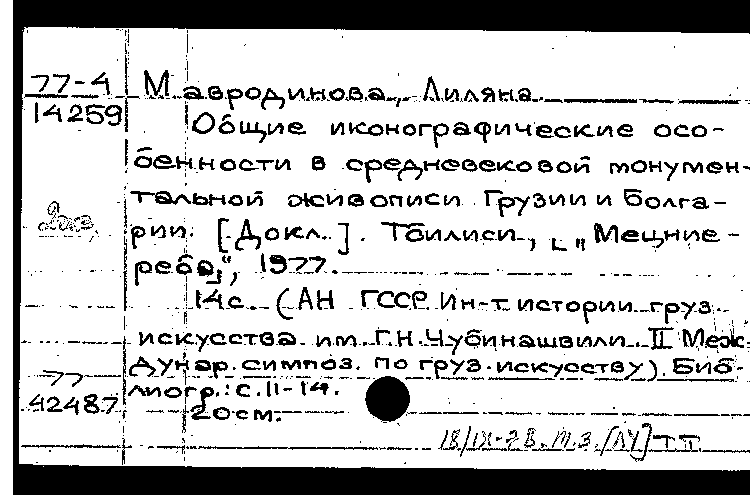 77-4 Мавродинова, Лиляна.
14259
Общие иконографические осо-
бенности в средневековой монумен-
тальной живописи Грузии и Болга-
рии. [Докл.]. Тбилиси, „Мецние-
реба“, 1977.
14с. (АН ГССР. Ин-т истории груз.
искусства им. Г.Н. Чубинашвили. II Меж-
дунар. симпоз. по груз. искусству). Биб-
лиогр.: с. 11-14.
20см.
77
42487